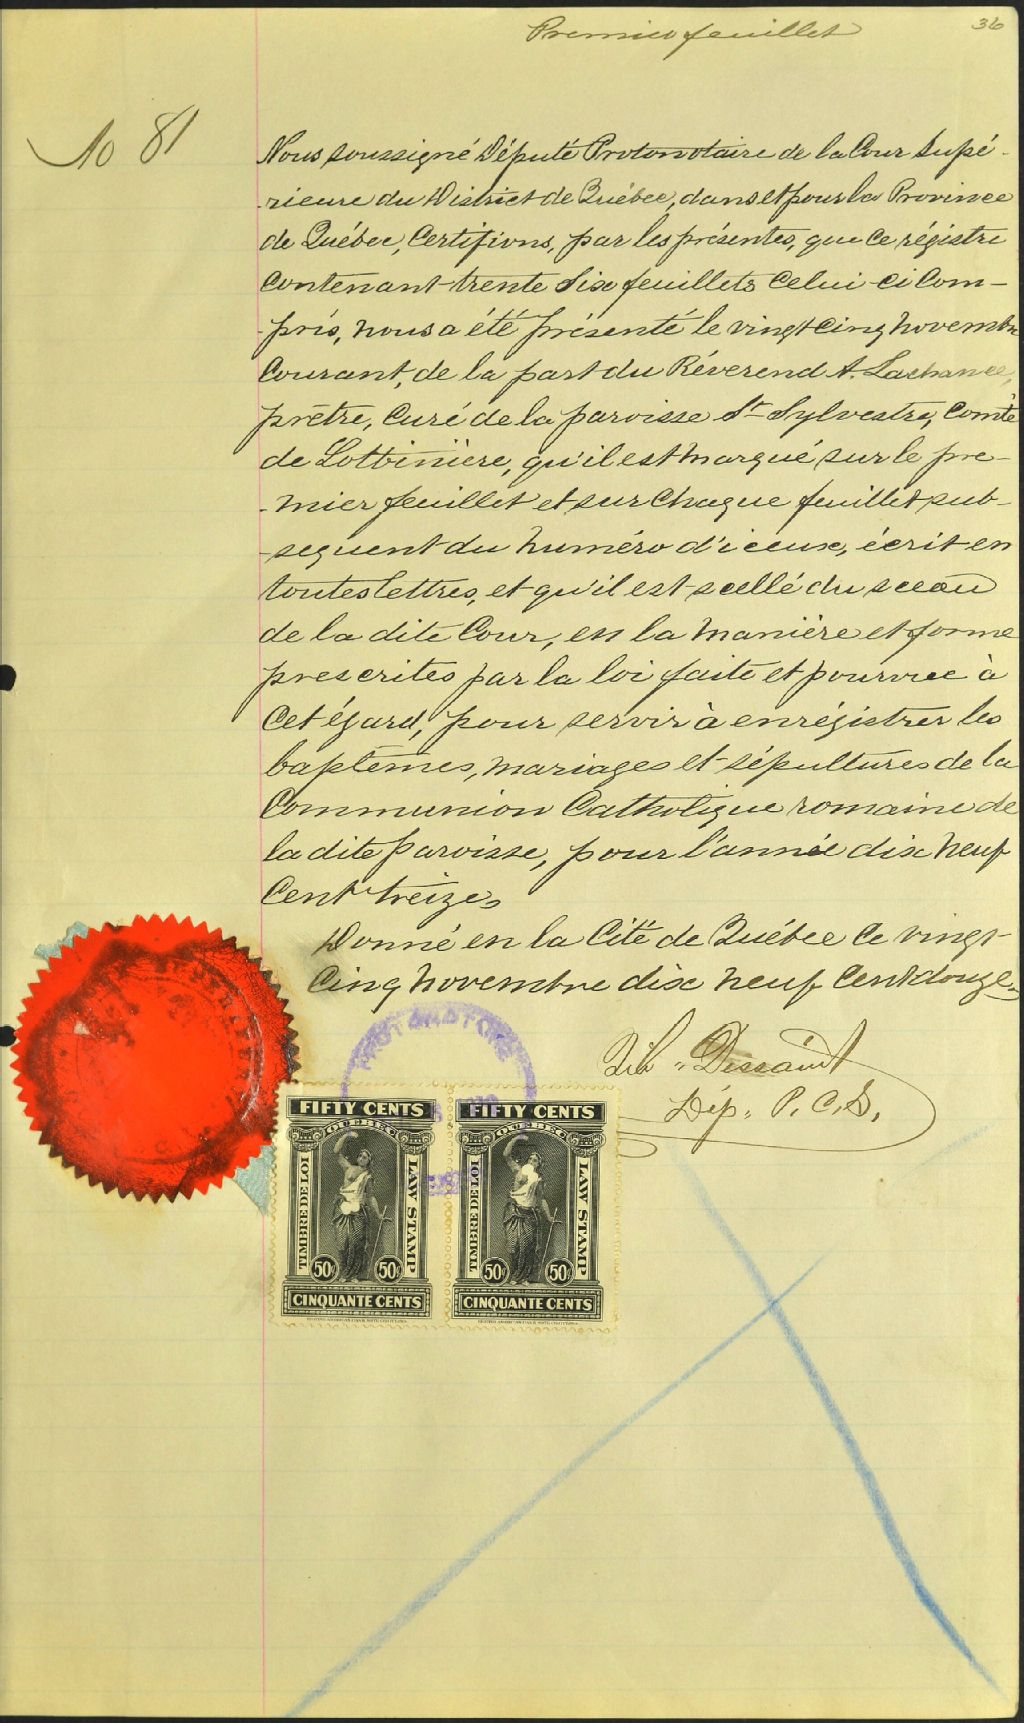 Premier feuillet
36
No 81
Nous soussigné Député Protonotaire de la Cour Supé-
-rieure du District de Québec, dans et pour la Province
de Québec, Certifions, par les présentes, que ce régistre
contenant trente six feuillets celui-ci com-
-pris, nous a été présenté le vingt cinq novembre
courant, de la part du Révérend A. Lachance,
prêtre, Curé de la paroisse St Sylvestre, Comté
de Lotbinière, qu'il est marqué sur le pre-
-mier feuillet et sur chaque feuillet sub-
-séquent du numéro d'iceux, écrit en
toutes lettres, et qu'il est scellé du sceau
de la dite Cour, en la manière et forme
prescrites par la loi faite et pourvue à
cet égard, pour servir à enrégistrer les
baptêmes, mariages et sépultures de la
Communion Catholique romaine de
la dite paroisse, pour l'année dix neuf
cent treize,
Donné en la Cité de Québec ce vingt
cinq novembre dix neuf cent douze.
Dessaint
Dép. P. C. S.
PROTONOTAIRE
FIFTY CENTS
QUEBEC
TIMBRE DE LOI
LAW STAMP
50c
50c
CINQUANTE CENTS
FIFTY CENTS
QUEBEC
TIMBRE DE LOI
LAW STAMP
50c
50c
CINQUANTE CENTS